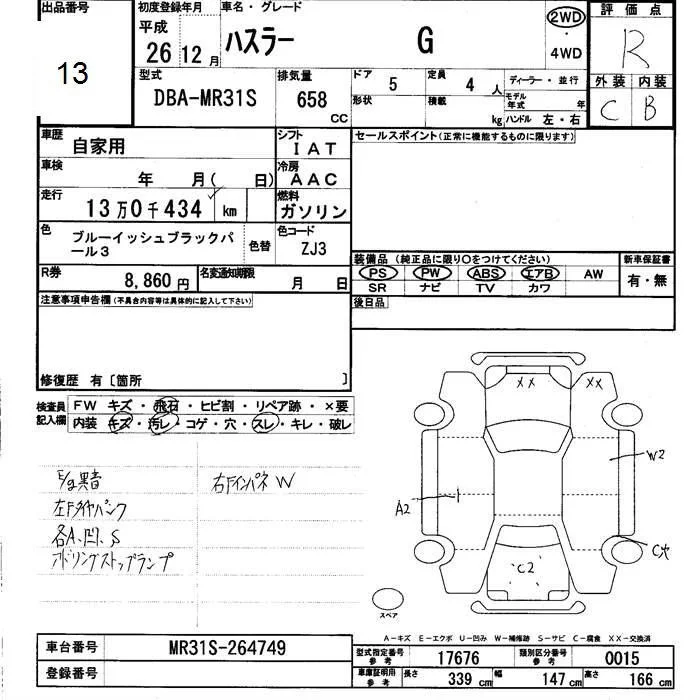 出品番号
13
初度登録年月
平成
26 12 月
車名・グレード
ハスラー G
2WD
・
4WD
評価点
R
外装 内装
C B
型式
DBA-MR31S
排気量
658
CC
ドア 5
定員 4 人
ディーラー・並行
形状
積載 kg
モデル年式 年
ハンドル 左・右
車歴
自家用
シフト
IAT
車検
年 月( 日)
冷房
AAC
走行
13万0千434 km
燃料
ガソリン
色
ブルーイッシュブラックパ
ール3
色替
色コード
ZJ3
R券
8,860円
名変通知期限
月 日
セールスポイント(正常に機能するものに限ります)
装備品(純正品に限り○をつけてください)
PS PW ABS エアB AW
SR ナビ TV カワ
新車保証書
有・無
後日品
注意事項申告欄(不具合内容等は具体的に記入して下さい)
修復歴 有〔箇所 〕
検査員
記入欄
FW キズ・飛石・ヒビ割・リペア跡・×要
内装 キズ・汚レ・コゲ・穴・スレ・キレ・破レ
E/g異音
左Fタイヤパンク
各A、凹、S
アドリングストップランプ
右Fインパネ W
XX XX
W2
A2
C穴
C2
スペア
A-キズ E-エクボ U-凹み W-補修跡 S-サビ C-腐食 XX-交換済
車台番号
MR31S-264749
登録番号
型式指定番号
参考
17676
類別区分番号
参考
0015
車庫証明用
参考
長さ 339 cm
幅 147 cm
高さ 166 cm